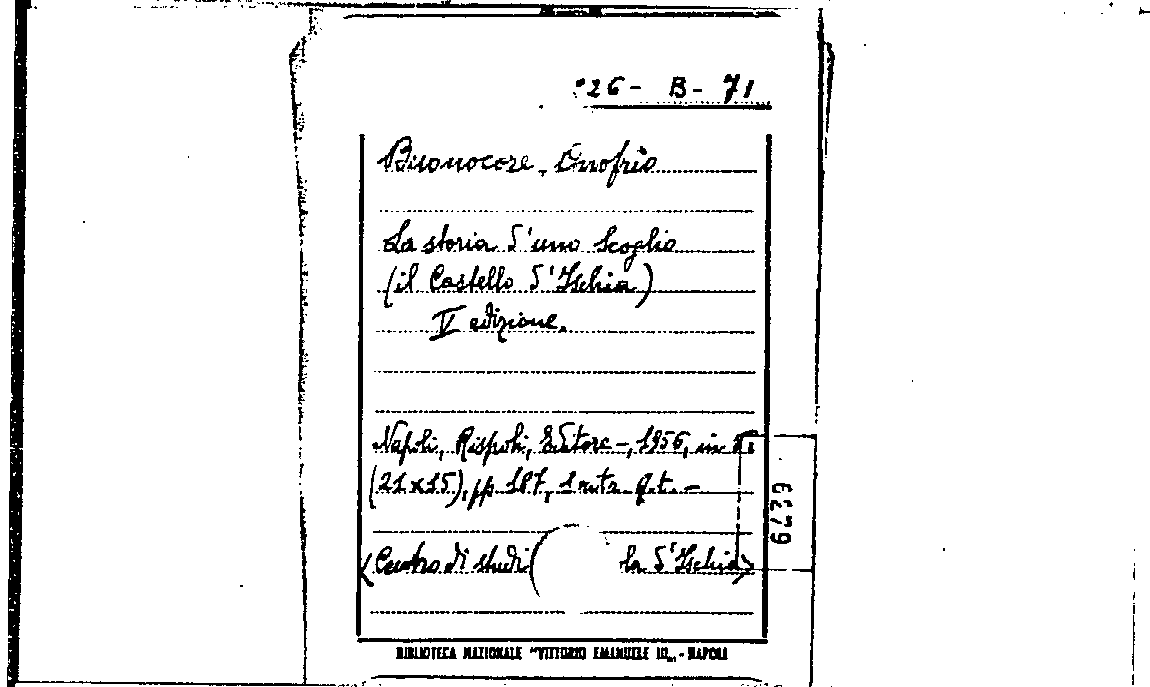 26 - B - 71
Buonocore, Onofrio
La storia d'uno scoglio
(il Castello d'Ischia)
V edizione.
Napoli, Rispoli, Editore -, 1956, in
(21x15), pp 187, 1 f.t. -
6779
<Centro di studi la d'Ischia>
BIBLIOTECA NAZIONALE "VITTORIO EMANUELE III" - NAPOLI